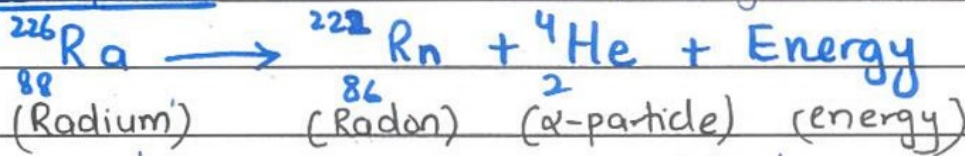 ²²⁶Ra ⟶ ²²²Rn + ⁴He + Energy
88 86 2
(Radium) (Radon) (α-particle) (energy)